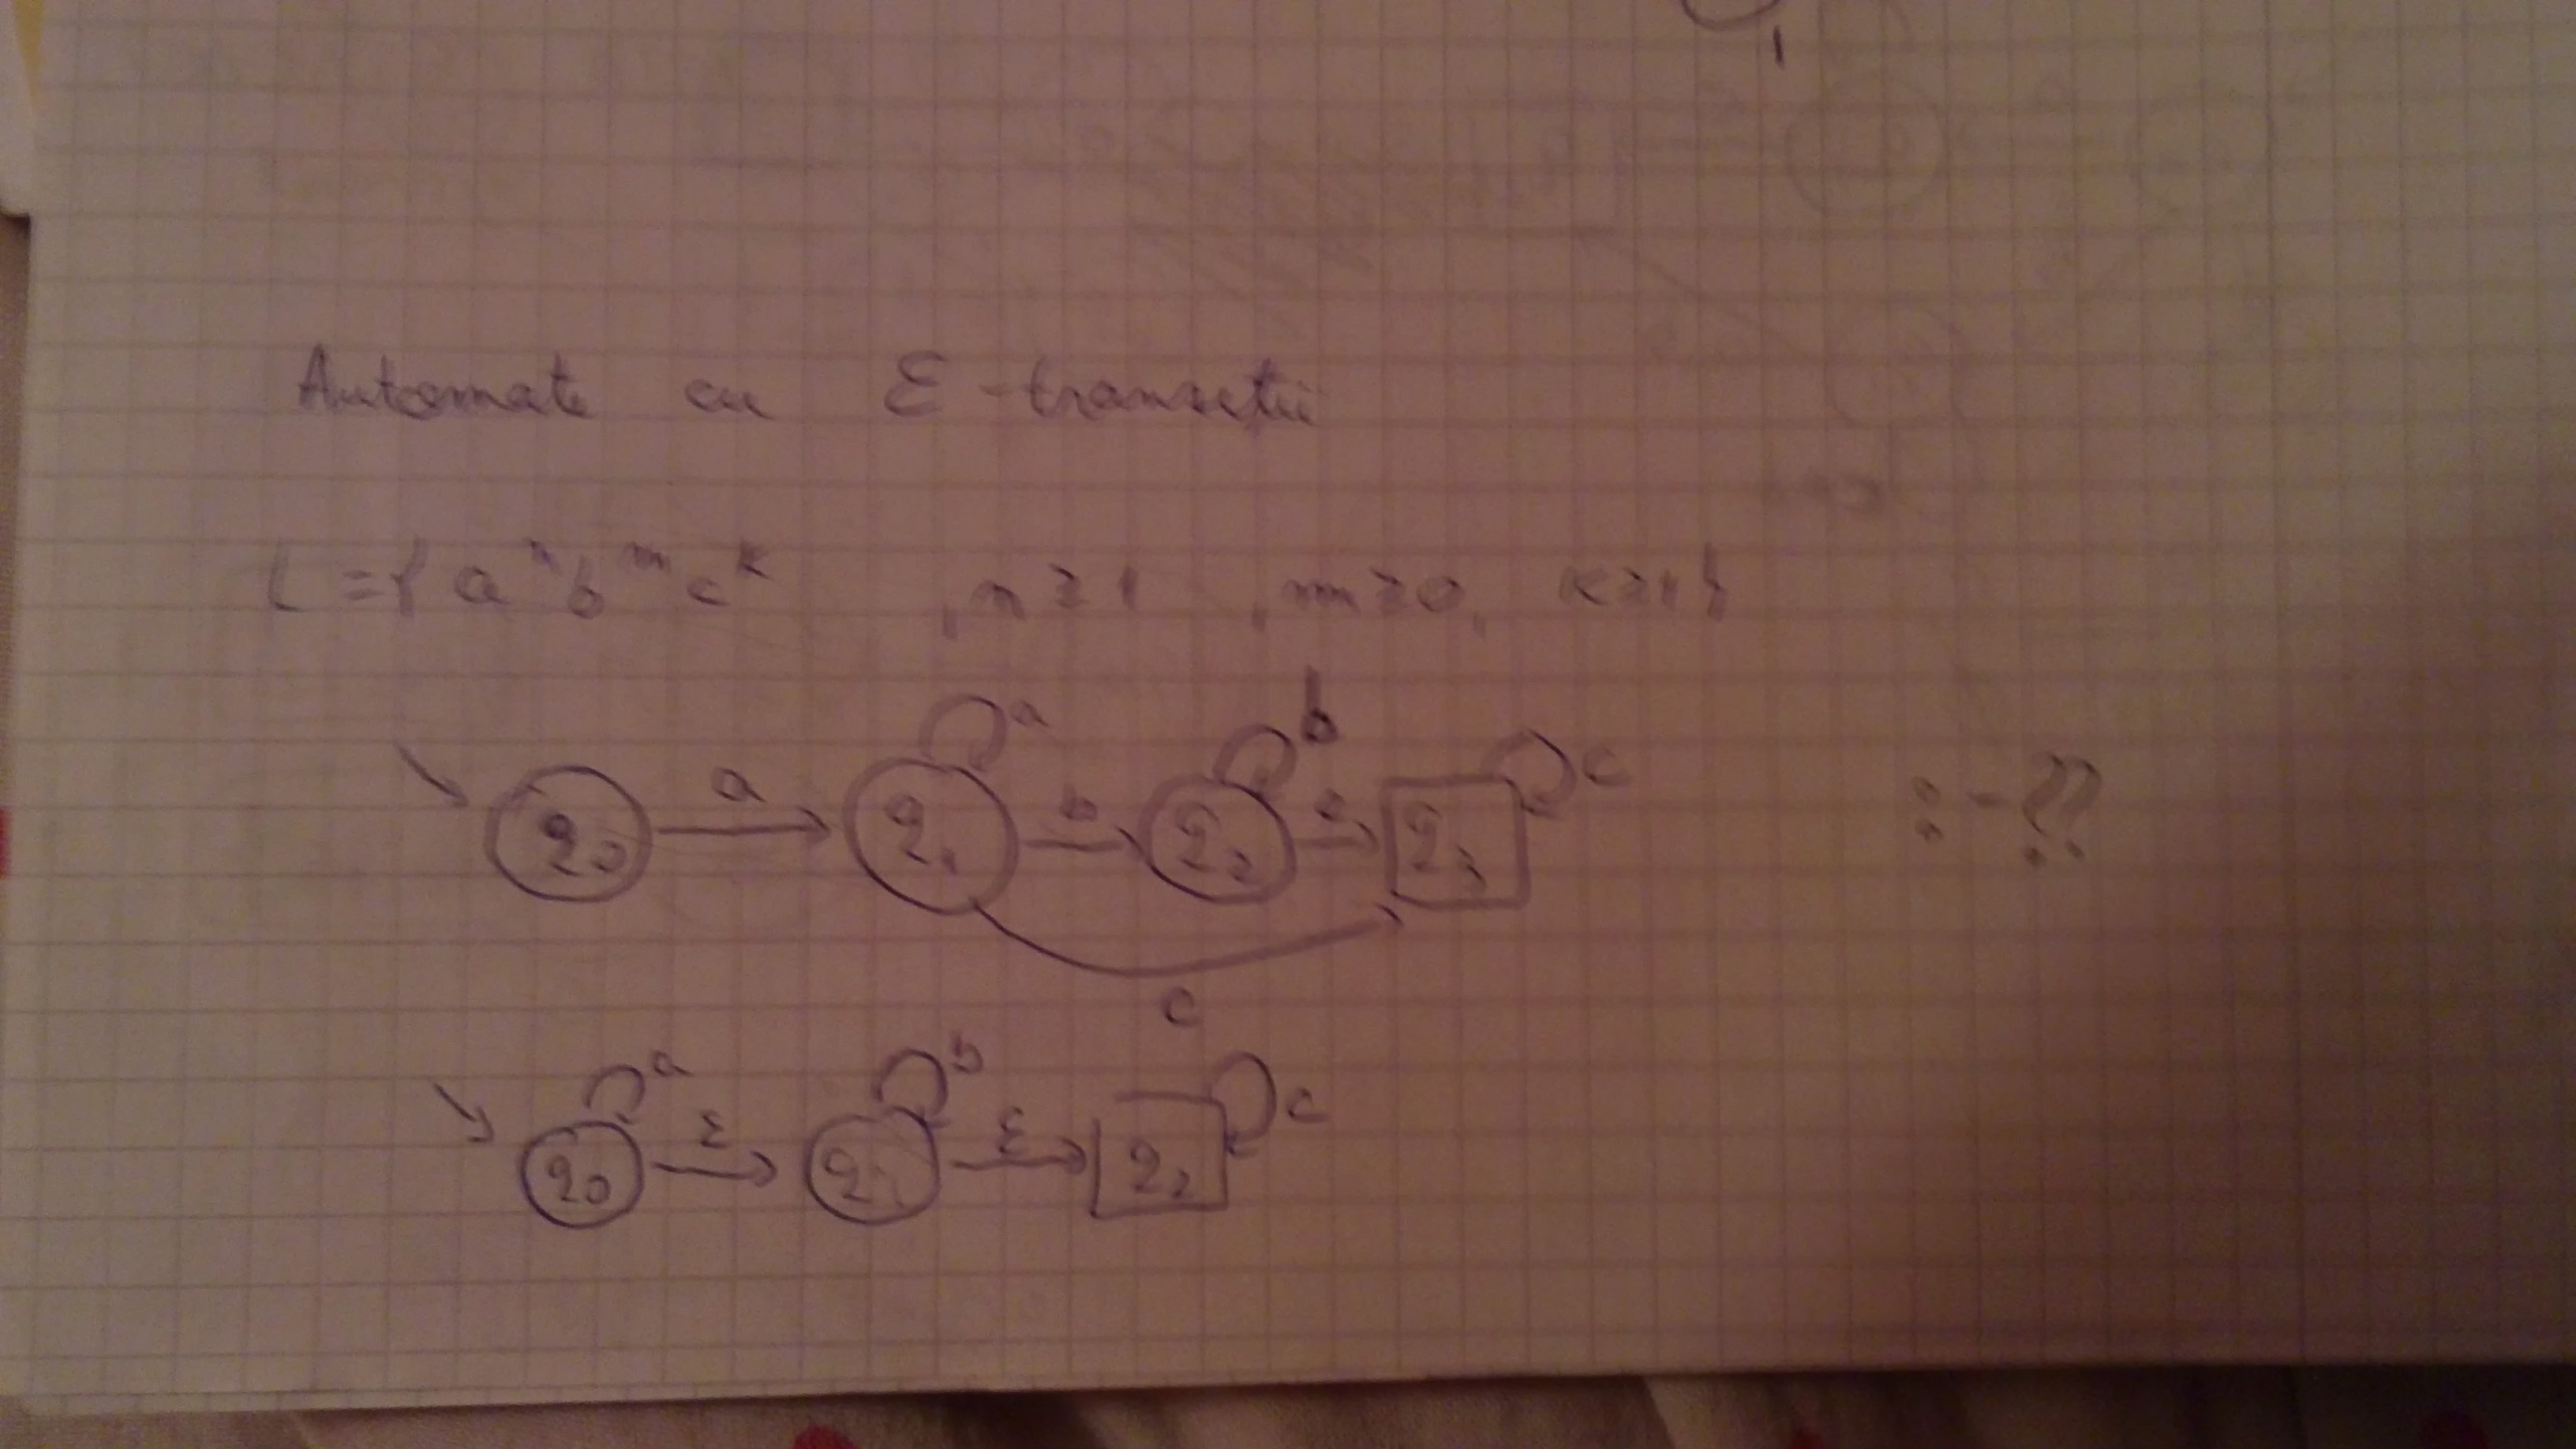 Automate cu ε-tranzitii
L = { a^n b^m c^k , n ≥ 1 , m ≥ 0, k ≥ 1 }
a b c
q0 a q1 b q2 c q3 :-??
c
a b c
q0 ε q1 ε q2